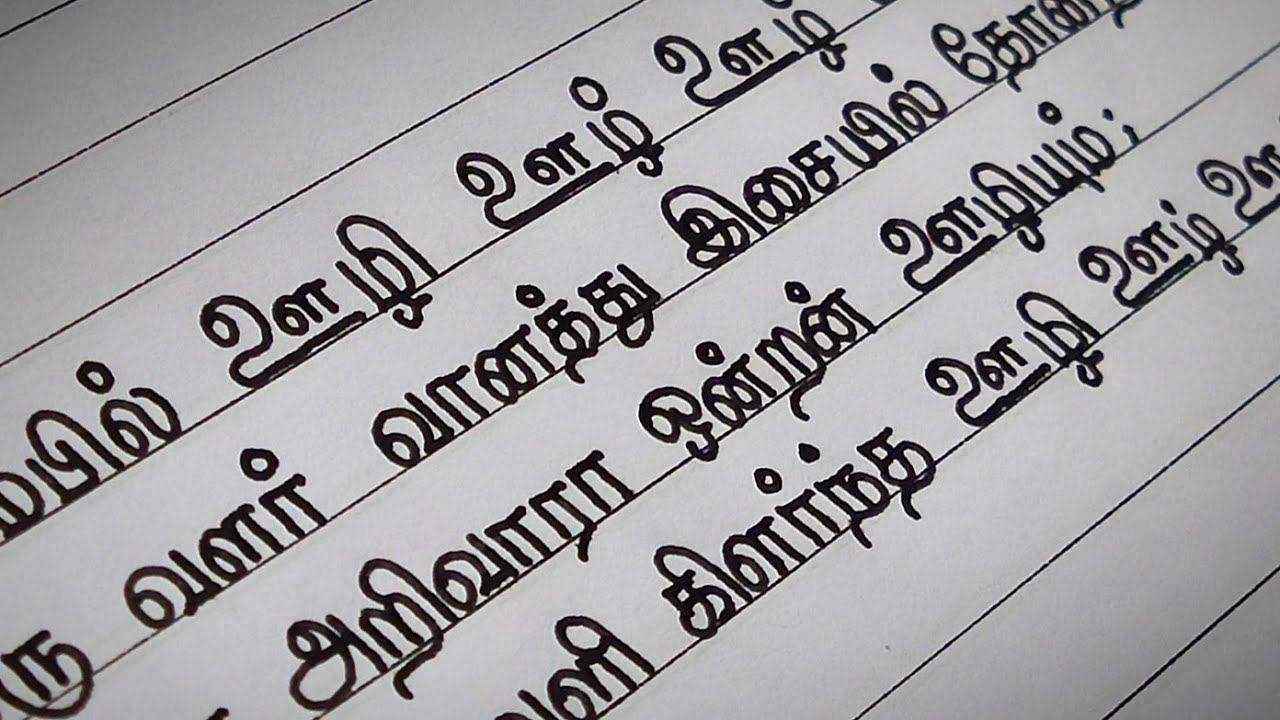 ஊழி ஊழ் ஊழ்
வளர் வானத்து இசையில்
அறிவாரா ஒன்றன் ஊழியும்;
கிளர்ந்த ஊழி ஊழ்